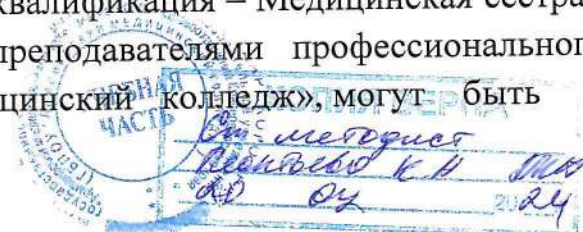 квалификация – Медицинская сестра
преподавателями профессионально
цинский колледж», могут быть
УЧЕБНАЯ
ЧАСТЬ
КОПИЯ ВЕРНА
Ст. методист
Леонтьева К Н
20 04 2024